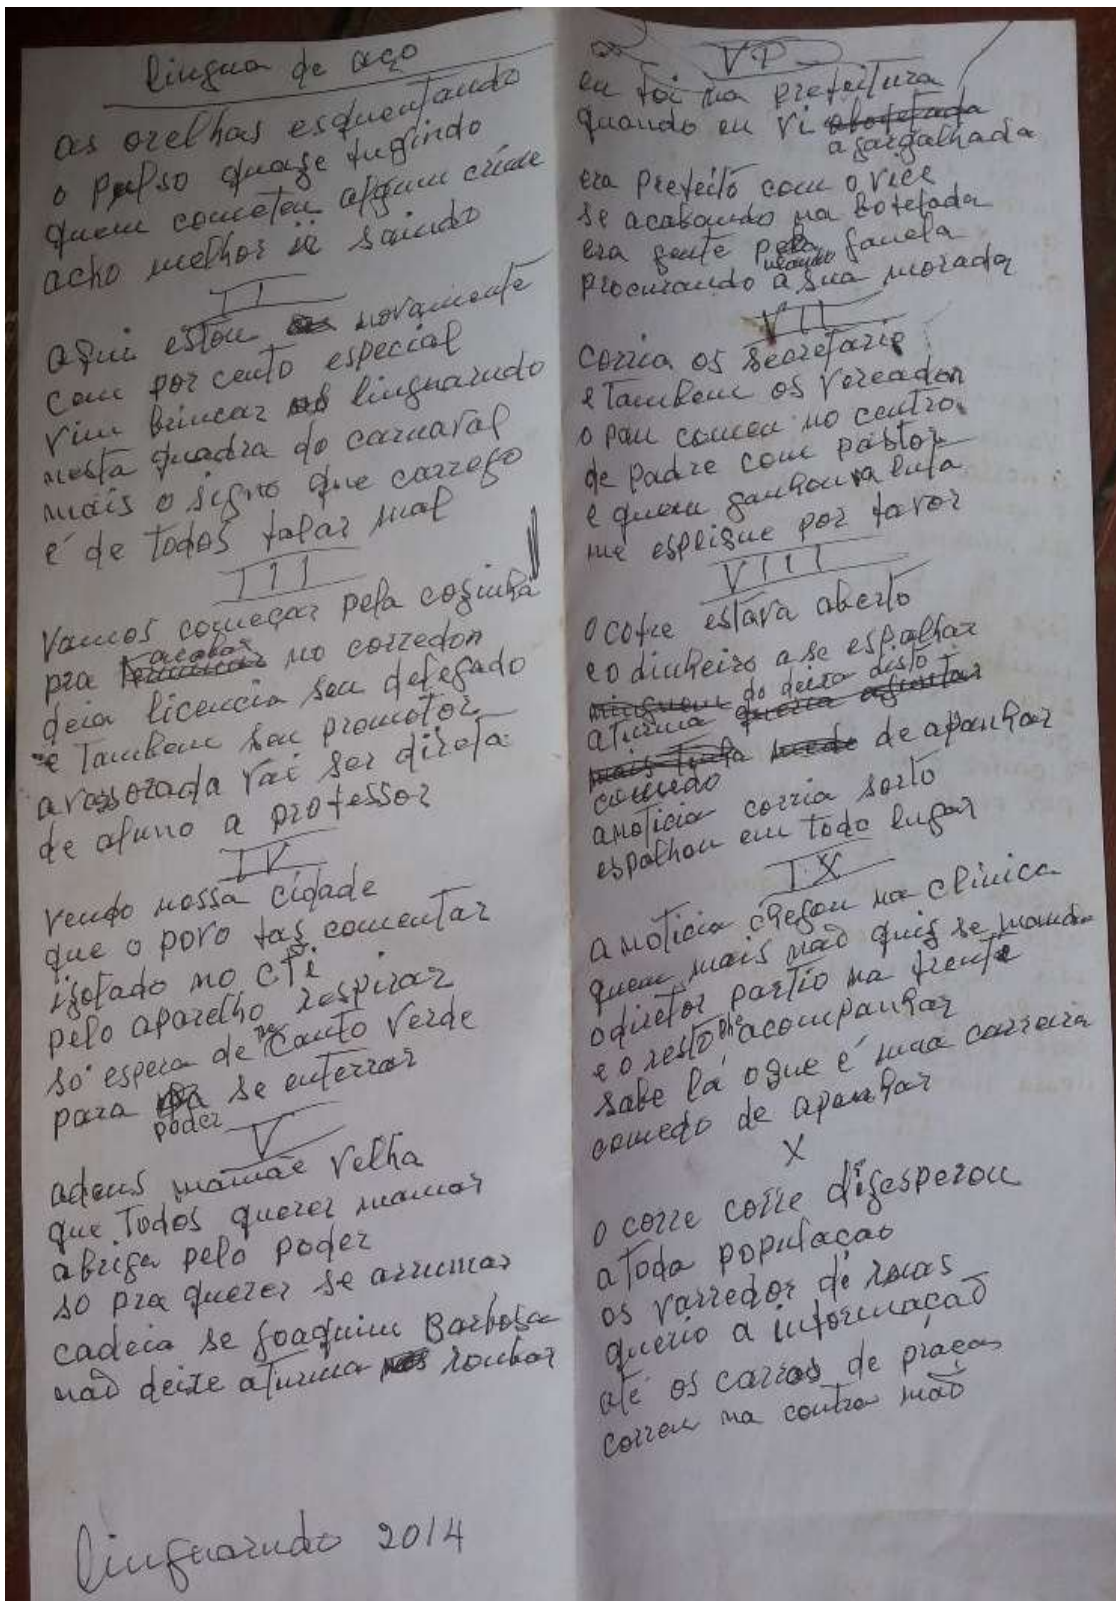 lingua de aço
as orelhas esquentando
o pulso quaze fugindo
quem cometeu algum crime
acho melhor ií saindo
II
aqui estou novamente
com por cento especial
vim brincar linguarudo
nesta quadra do carnaval
mais o signo que carrego
é de todos falar mal
III
Vamos começar pela cozinha
pra acabar no corredor
deia licencia seu delegado
e Tambem seu promotor
a vassorada vai ser direta
de aluno a professor
IV
Vendo nossa cidade
que o povo fas comentar
izolado no CTI
pelo aparelho respirar
só espera de Canto Verde
para poder se enterrar
V
adeus mamãe velha
que Todos querer mamar
abriga pelo poder
so pra querer se arrumar
cadeia se Joaquim Barbosa
não deixe aturma roubar
linguarudo 2014
VI
eu foi na prefeitura
quando eu vi a gargalhada
era Prefeito com o vice
se acabando na bofetada
era gente janela
procurando a sua morada
VII
corria os Secretario
e Tambem os Vereador
o pau comeu no centro
de Padre com pastor
e quem ganhou a luta
me esplique por favor
VIII
o cofre estava aberto
e o dinheiro a se espalhar
aturma do deixa disto
comedo de apanhar
anoticia corria sorto
espalhou em todo lugar
IX
anoticia chegou na clinica
quem mais não quis se mandar
odiretor partio na frente
e o resto acompanhar
sabe lá oque é uma carreira
comedo de apanhar
X
o corre corre disesperou
a Toda população
os varredor de ruas
querio a informação
até os carros de praças
correu na contra mão